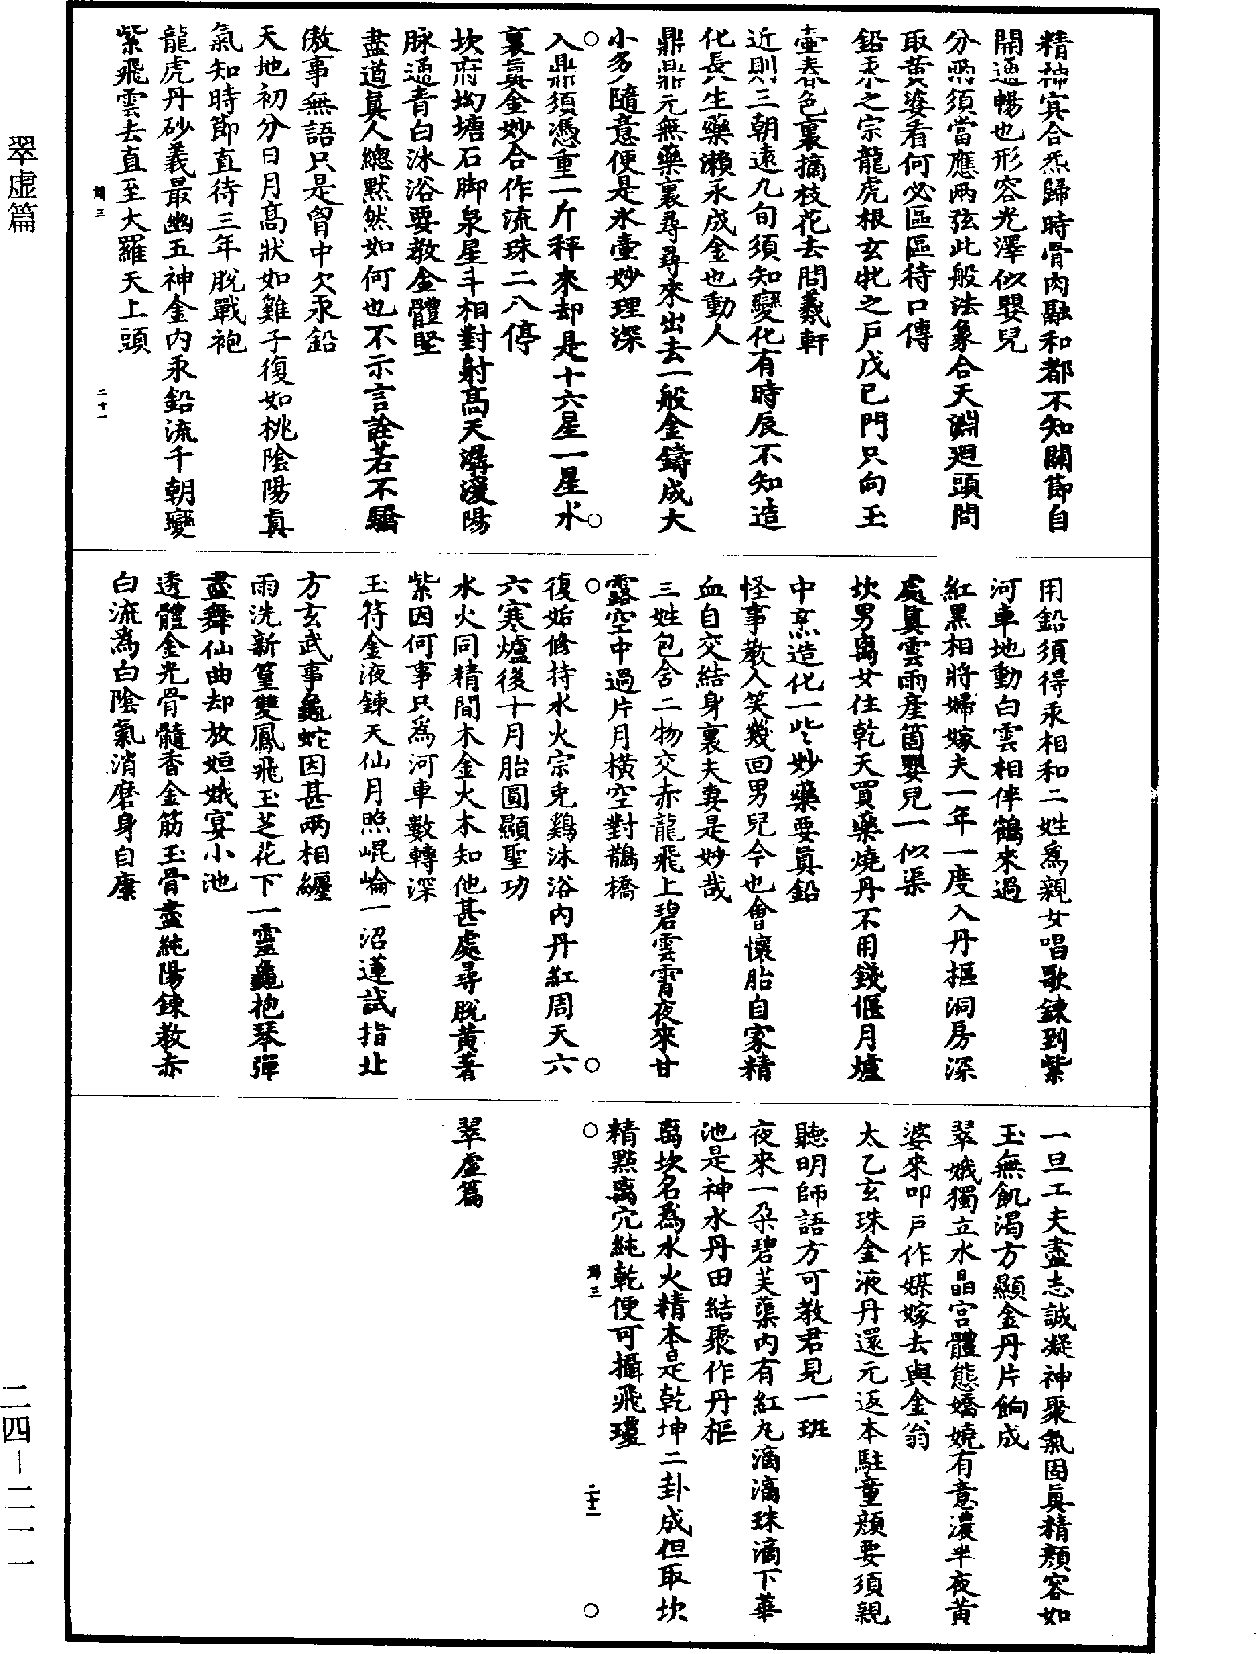 精神宾合炁歸時骨肉融和都不知關節自
開通暢也形容光澤似嬰兒
分兩須當應兩弦此般法象合天淵廻頭問
取黃婆看何必區區待口傳
鉛汞之宗龍虎根玄牝之戶戊己門只向玉
壷春色裏摘枝花去問羲軒
近則三朝遠九旬須知變化有時辰不知造
化長生藥瀨汞成金也動人
鼎鼎元無藥裏尋尋來出去一般金鑄成大
小多隨意便是氷壷妙理深
入鼎須憑重一斤秤來却是十六星一星水
裏真金妙合作流珠二八停
坎府坳塘石脚泉星斗相對射高天潺湲陽
脉通青白沐浴要教金體堅
盡道真人總默然如何也不示言詮若不驕
傲事無語只是胷中欠汞鉛
天地初分日月高狀如雞子復如桃陰陽真
氣知時節直待三年脫戰袍
龍虎丹砂義最幽五神金內汞鉛流千朝變
紫飛雲去直至大羅天上頭
用鉛須得汞相和二姓為親女唱歌鍊到紫
河車地動白雲相伴鶴來過
紅黑相將婦嫁夫一年一度入丹樞洞房深
處真雲雨產箇嬰兒一似渠
坎男离女住乾天買藥燒丹不用錢偃月爐
中烹造化一些妙藥要真鉛
怪事教人笑幾回男兒今也會懷胎自家精
血自交結身裏夫妻是妙哉
三姓包含二物交赤龍飛上碧雲霄夜來甘
露空中過片月橫空對鵲橋
復姤修持水火宗兎鷄沐浴內丹紅周天六
六寒爐後十月胎圓顯聖功
水火同精間木金火木知他甚處尋脫黃著
紫因何事只為河車數轉深
玉符金液鍊天仙月照崐崘一沼蓮試指北
方玄武事龜蛇因甚兩相纏
雨洗新篁雙鳳飛玉芝花下一靈龜抱琴彈
盡舞仙曲却放姮娥宴小池
透體金光骨髓香金筋玉骨盡純陽鍊教赤
白流為白陰氣消磨身自康
一旦工夫盡志誠凝神聚氣固真精顏容如
玉無飢渴方顯金丹片餉成
翠娥獨立水晶宮體態嬌嬈有意濃半夜黃
婆來叩戶作媒嫁去與金翁
太乙玄珠金液丹還元返本駐童顏要須親
聽明師語方可教君見一班
夜來一朶碧芙蕖內有紅丸滴滴珠滴下華
池是神水丹田結聚作丹樞
离坎名為水火精本是乾坤二卦成但取坎
精點离穴純乾便可攝飛瓊
翠虛篇
翠虛篇
二四—二一一
二十一